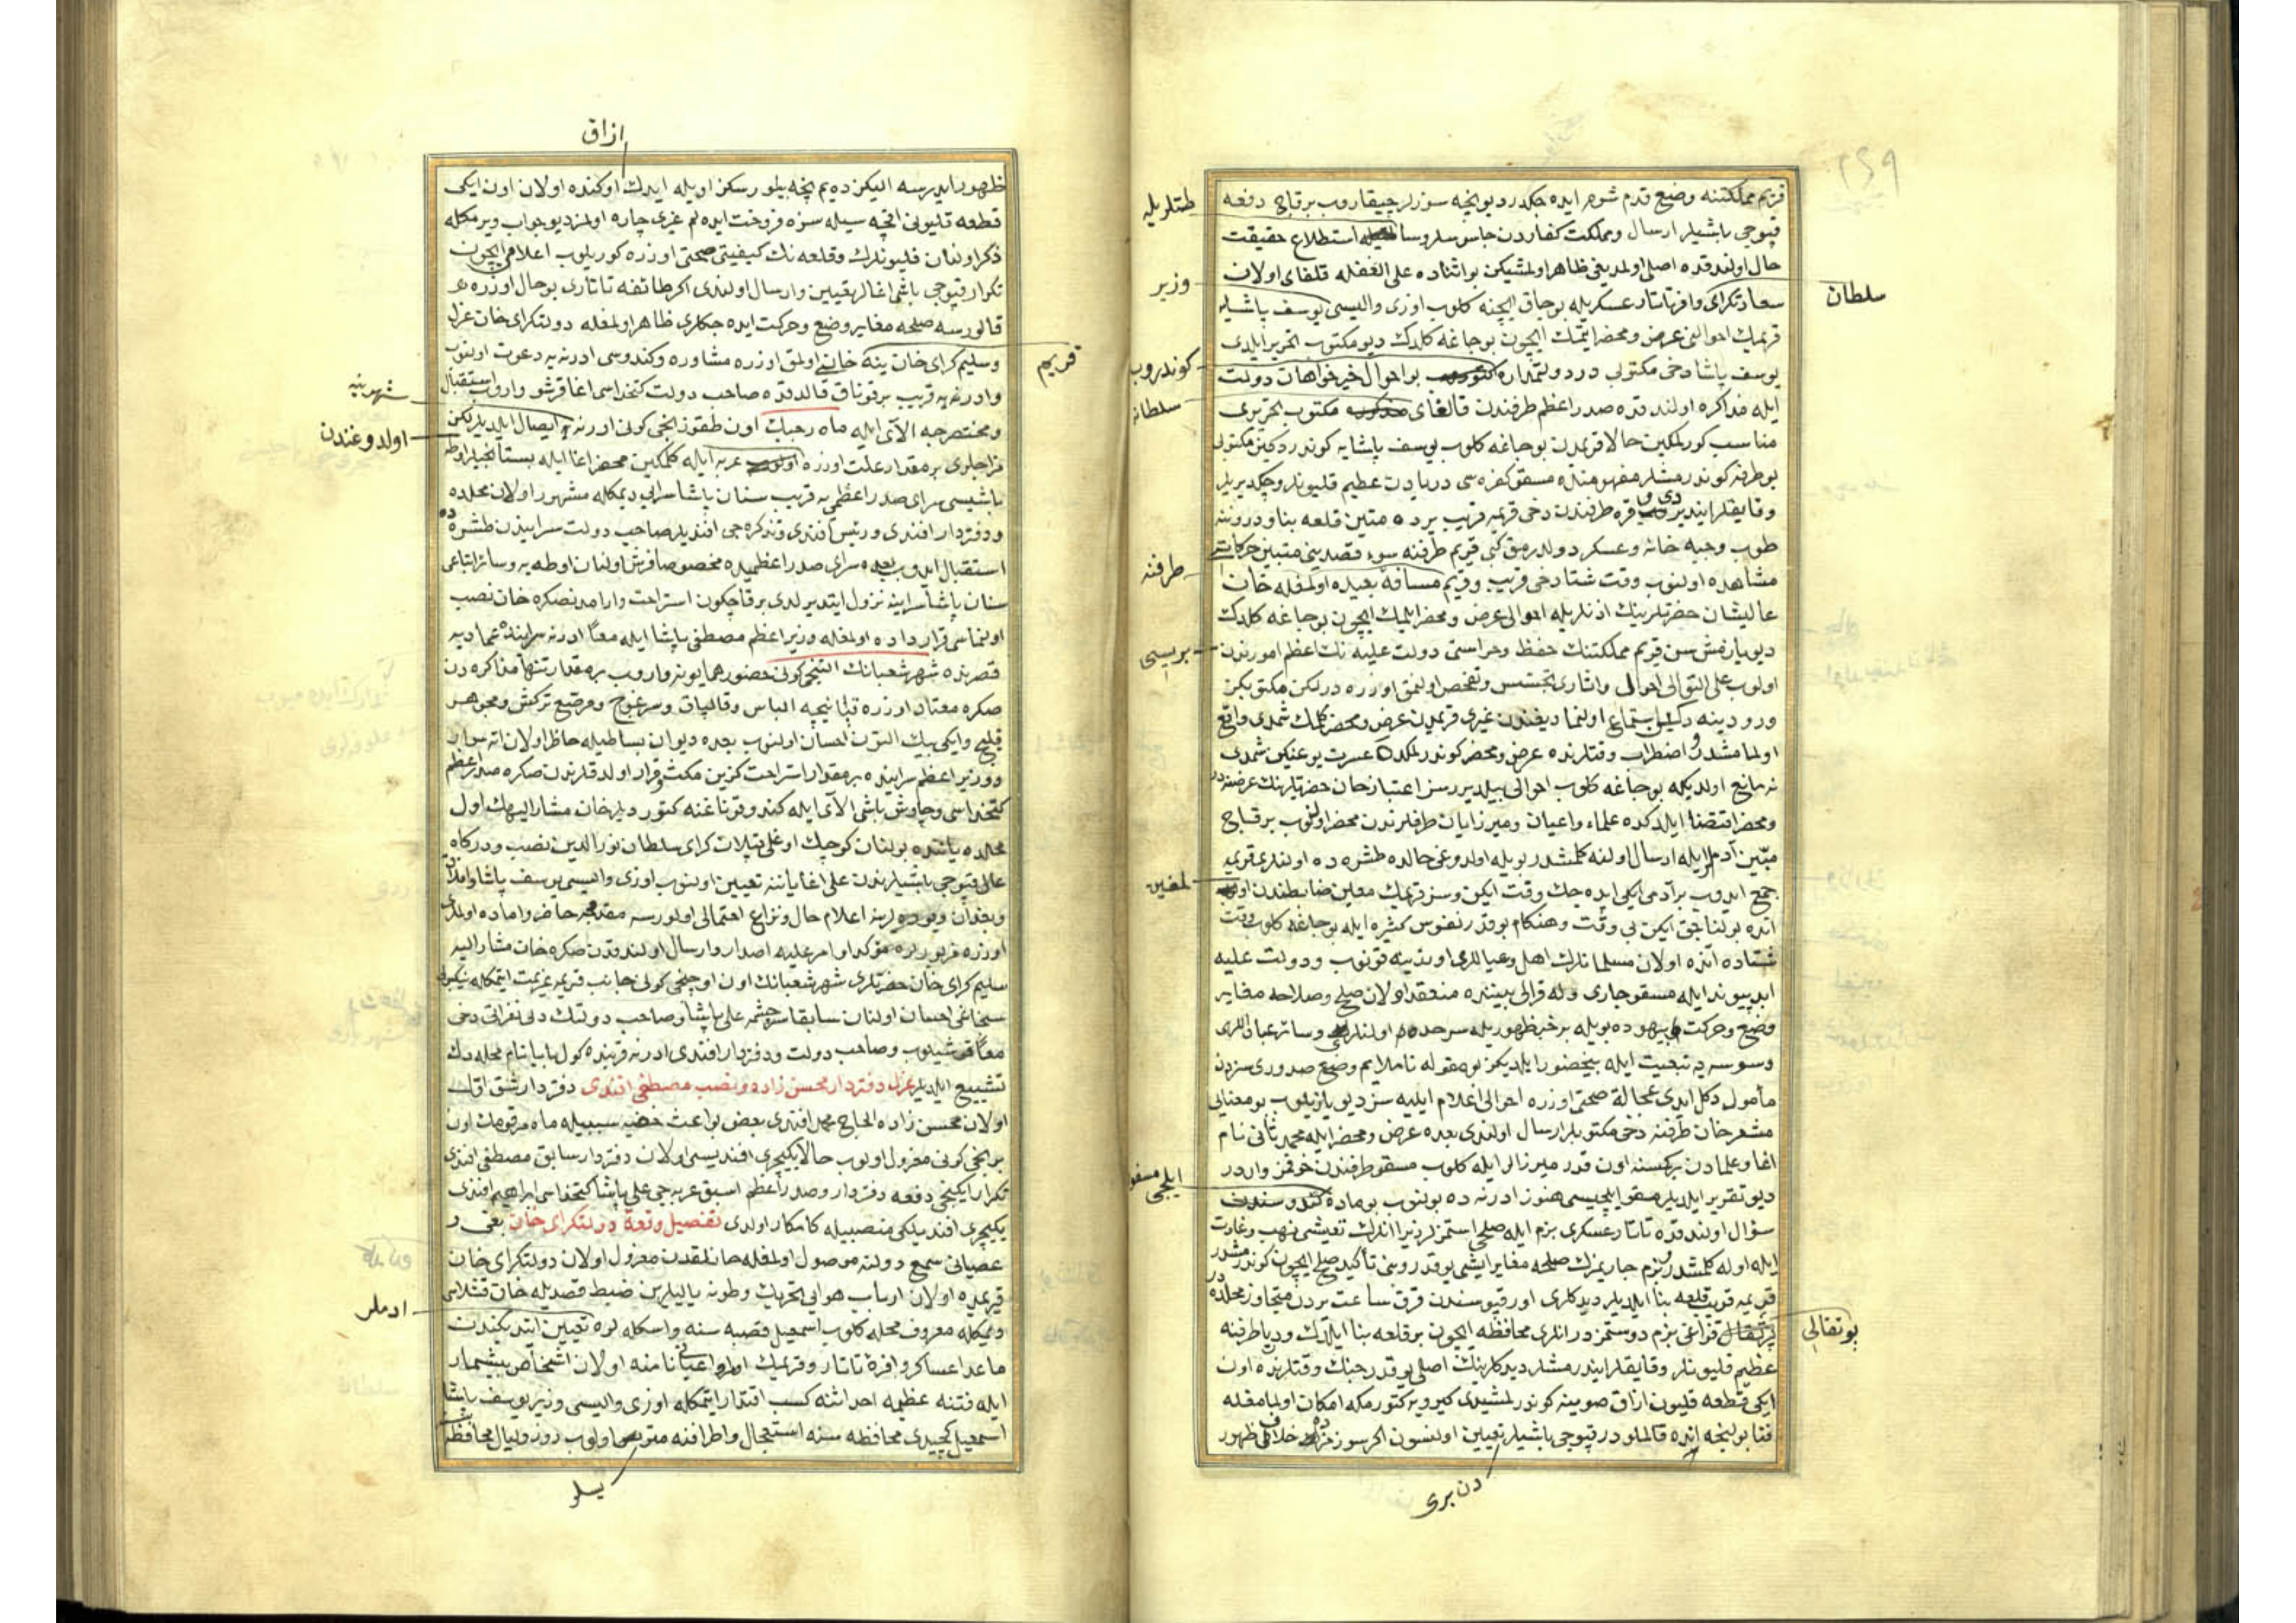 ٢٤٩
قریم مملکتنه وضع قدم شوم ایده جکلردر دیو نیجه سوزلر چیقاروب بر قاچ دفعه
قپوجی باشیلر ارسال و مملکت کفاردن جاسوسلر استطلاع حقیقت
حال اولندقده اصلی اولمدیغی ظاهر اولمشیکن بو اثناده علی الغفله قلغای اولان
سعادتکرای وافر تاتار عسکریله بوجاق ایچنه کلوب اوزی والیسی یوسف پاشایه
قریمك احوالنی عرض و محضر ایتمك ایچون بوجاغه کلدك دیو مکتوب تحریر ایلدی
یوسف پاشا دخی مکتوبی در دولتمداره بو احوال خیرخواهان دولت
ایله مذاکره اولندقده صدر اعظم طرفندن قالغای مکتوب تحریری
مناسب کورلمکین حالا قریمدن بوجاغه کلوب یوسف پاشایه کوندردکین مکتوبی
بو طرفه کوندرمشلر مفهومنده مسقو کفره سی دریاده عظیم قلیونلر و چکدیریلر
و قایقلر ایندیروب قره طرفندن دخی قریمه قریب یرده متین قلعه بنا و دروننه
طوب و جبه خانه و عسکر دولدرمق کبی قریم طرفنه سوء قصدینی متبین حرکاتی
مشاهده اولنوب وقت شتا دخی قریب و قریم مسافهٔ بعیده اولمغله خان
عالیشان حضرتلرینك اذنلریله احوالی عرض و محضر ایلمك ایچون بوجاغه کلدك
دیو یازمش سن قریم مملکتنك حفظ و حراستی دولت علیه نك اعظم امورندن
اولوب علی التوالی احوال و اثاری تجسس و تفحص اولنمق اوزره درلکن مکتوبکز
ورودینه دکین استماع اولنمادیغندن غیری قریمدن عرض و محضر کلمك شمدی واقع
اولمامشدر اضطراب وقتلرنده عرض و محضر کوندرلمکده عسرت یوغیکن شمدی
نه مانع اولدیکه بوجاغه کلوب احوالی بیلدیررسز اعتبار خان حضرتلرینك عرضنه در
و محضر اقتضا ایلدکده علماء و اعیان و میرزایان طرفلرندن محضر اولنوب بر قاچ
متین آدملر ایله ارسال اولنه کلمشدر بویله اولدوغی حالده طشره ده اولنلری قریمه
جمع ایدوب بر آدمی ایکی ایده جك وقت ایکن و سز قریمك معین ضابطندن
انده بولناجق ایکن بی وقت و هنکام بو قدر نفوس کثیره ایله بوجاغه کلوب وقت
شتاده انده اولان مسلمانلرك اهل و عیاللری اوندینه قونوب و دولت علیه
ابدپیوند ایله مسقو چاری و له قرالی بیننده منعقد اولان صلح و صلاحه مغایر
وضع و حرکت بیهوده بویله بر خبر ظهوریله سرحدده اولنلری و سائر عباداللهی
وسوسه یه تبعیت ایله بیحضور ایلدیکز بو مقوله ناملایم وضع صدوری سزدن
مأمول دکل ایدی عجالة صحتی اوزره احوالی اعلام ایلیه سز دیو یازیلوب بو معنایی
مشعر خان طرفنه دخی مکتوبلر ارسال اولندی بعده عرض و محضر ایله محمد ثانی نام
اغا و علمادن بر کمسنه اون قدر میرزالر ایله کلوب مسقو طرفندن خوفمز واردر
دیو تقریر ایلدیلر مسقو ایلچیسی هنوز ادرنه ده بولنوب بو ماده
سؤال اولندقده تاتار عسکری بزم ایله صلحی استمزلر زیرا انلرك تعیشی نهب و غارت
ایله اوله کلمشدر و بزم چاریمزك صلحه مغایر ایشی یوقدر روسی تأکید صلح ایچون کوندرمشدر
قریمه قریب قلعه بنا ایلدیلر دیدکلری اورقپوسندن قرق ساعت یردن متجاوز محلده در
قزاغی بزم دوستمزدر انلری محافظه ایچون بر قلعه بنا ایلدك و دریا طرفنه
عظیم قلیونلر و قایقلر ایندرمشلر دیدکلرینك اصلی یوقدر جنك وقتلرنده اون
ایکی قطعه قلیون ازاق صوینه کوندرلمشیدی کیرویه کتورمکه امکان اولمامغله
فنا بولنجه انده قالملودر قپوجی باشیلر تعیین اولنسون اکر سوزمزك خلافی ظهور
طتلریله
وزیر
کوندروب
سلطانه
طرفنه
بریسی
لمغین
ایلچی مسقو
سلطان
بوتقالی
دن بری
ازاق
ظهور ایدرسه الیکزده یم نیجه بیلورسکز اویله ایدك اوکنده اولان اون ایکی
قطعه قلیونی اقچه سیله سزه فروخت ایده لم غیری چاره اولمز دیو جواب ویرمکله
ذکر اولنان قلیونلرك و قلعه نك کیفیتی صحتی اوزره کوریلوب اعلامی ایچون
تکرار قپوجی باشی اغالر تعیین و ارسال اولندی اکر طائفه تاتاری بو حال اوزره
قالورسه صلحه مغایر وضع و حرکت ایده جکلری ظاهر اولمغله دولتکرای خان عزل
و سلیم کرای خان ینه خان اولمق اوزره مشاوره و کندوسی ادرنه یه دعوت اولنوب
و ادرنه یه قریب بر قوناق قالدقده صاحب دولت کتخداسی اغا قرشو واروب استقبال
و مختصرجه الآی ایله ماه رجبك اون طقوزنجی کونی ادرنه یه ایصال ایلدیلر لکن
مزاجلری بر مقدار علت اوزره عربه ایله کلمکین محضر اغا ایله بستانجیلر اوطه
باشیسی سرای صدر اعظمی یه قریب سنان پاشا سرایی دیمکله مشهور اولان محلده
و دفتردار افندی و رئیس افندی و تذکره جی افندیلر صاحب دولت سرایندن طشره ده
استقبال ایدوب بعده سرای صدر اعظمیده مخصوصا فرش اولنان اوطه یه و سائر اتباعی
سنان پاشا سراینه نزول ایتدیرلدی بر قاچ کون استراحت و ارامدنصکره خان نصب
اولنماسی قرارداده اولمغله وزیر اعظم مصطفی پاشا ایله معاً ادرنه سراینده تمادیه
قصرنده شهر شعبانك التنجی کونی حضور همایونه واروب بر مقدار تنها مذاکره دن
صکره معتاد اوزره قپانیچه الباس و قالپاق و سرغوج و مرصع ترکش و مجوهر
قلیج و ایکی بیك التون احسان اولنوب بعده دیوان بساطیله حاظر اولان اته سوار
و وزیر اعظم سراینده بر مقدار استراحت کزین مکث و قرار اولدقلرندن صکره صدر اعظم
کتخداسی و چاوش باشی الآی ایله کندو قوناغنه کتوردیلر خان مشار الیهك اول
محلده یاننده بولنان کوچك اوغلی قپلان کرای سلطان نورالدین نصب و درکاه
عالی قپوجی باشیلرندن علی اغا یاننه تعیین اولنوب اوزی والیسی یوسف پاشا و افلاق
و بغدان ویوده لرینه اعلام حال و نزاع احتمالی اولورسه مقدمجه حاضر و اماده اولملری
اوزره مزبورلره مؤکد اوامر علیه اصدار و ارسال اولندقدن صکره خان مشار الیه
سلیم کرای خان حضرتلری شهر شعبانك اون اوچنجی کونی جانب قریمه عزیمت ایتمکله نیکبولی
سنجاغی احسان اولنان سابقا سرچشمه علی پاشا و صاحب دولتك دلی نفراتی دخی
معاً قوشیلوب و صاحب دولت و دفتردار افندی ادرنه قربنده کول بابا نام محله دك
تشییع ایلدیلر عزل دفتردار محسن زاده و نصب مصطفی افندی دفتردار شق اول
اولان محسن زاده الحاج محمد افندی بعض بواعث خفیه سببیله ماه مرقومك اون
برنجی کونی معزول اولوب حالا یکیچری افندیسی اولان دفتردار سابق مصطفی افندی
تکرار ایکنجی دفعه دفتردار و صدر اعظم اسبق عربه جی علی پاشا کتخداسی ابراهیم افندی
یکیچری افندیلکی منصبیله کامکار اولدی تفصیل وقعهٔ دولتکرای خان بغی و
عصیانی سمع دولته موصول اولمغله خانلقدن معزول اولان دولتکرای خان
قریمده اولان ارباب هوایی تحریك و طونه یالیلرین ضبط قصدیله خان قشلاسی
دیمکله معروف محله کلوب اسمعیل قصبه سنه و اسکله لره تعیین ایتدیکندن
ماعدا عساکر وافرهٔ تاتار و قریمك اعیانی نامنه اولان اشخاص بیشمار
ایله فتنه عظیمه احداثنه کسب اقتدار ایتمکله اوزی والیسی وزیر یوسف پاشا
اسمعیل کچیدی محافظه سنه استعجال و اطرافنه متوس اولوب روز و لیال محافظه
قریم
شهرینه
اولدوغندن
ادملر
یسلو